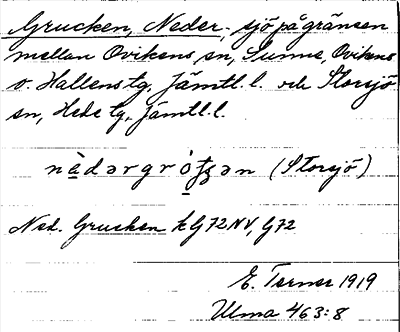 Grucken, Neder-, sjö på gränsen
mellan Ovikens sn, Sunne, Ovikens
o. Hallens tg, Jämtl. l. och Storsjö
sn, Hede tg, Jämtl. l.
(Storsjö)
Ned. Grucken kG72NV, G72
E. Terner 1919
Ulma 463:8